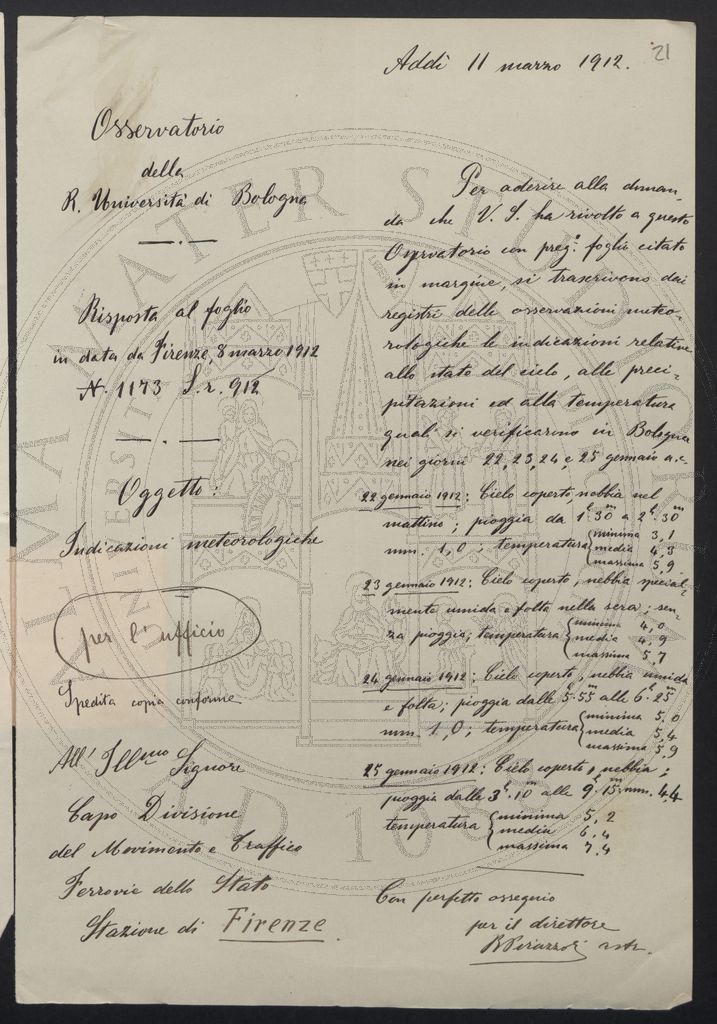 21
Addì 11 marzo 1912.
Osservatorio
della
R. Università di Bologna
Risposta al foglio
in data da Firenze, 8 marzo 1912
N. 1173 S.r. 912
Oggetto:
Indicazioni meteorologiche
per l'ufficio
Spedita copia conforme
All' Illmo Signore
Capo Divisione
del Movimento e Traffico
Ferrovie dello Stato
Stazione di Firenze.
Per aderire alla diman-
da che V. S. ha rivolto a questo
Osservatorio con preg.° foglio citato
in margine, si trascrivono dai
registri delle osservazioni meteo-
rologiche le indicazioni relative
allo stato del cielo, alle preci-
pitazioni ed alla temperatura
quali si verificarono in Bologna
nei giorni 22, 23, 24 e 25 gennaio a.c.
22 gennaio 1912: Cielo coperto, nebbia nel
mattino; pioggia da 1h.30m a 2h.30m
mm. 1,0; temperatura { minima 3,1
media 4,3
massima 5,9
23 gennaio 1912: Cielo coperto, nebbia special-
mente umida e folta nella sera; sen-
za pioggia; temperatura { minima 4,0
media 4,9
massima 5,7
24 gennaio 1912: Cielo coperto, nebbia umida
e folta; pioggia dalle 5h.55m alle 6h.25m
mm. 1,0; temperatura { minima 5,0
media 5,4
massima 5,9
25 gennaio 1912: Cielo coperto, nebbia;
pioggia dalle 3h.10m alle 9h.15m mm. 4,4
temperatura { minima 5,2
media 6,4
massima 7,4
Con perfetto ossequio
per il direttore
ALMA MATER STUDIORUM
A.D. 1088